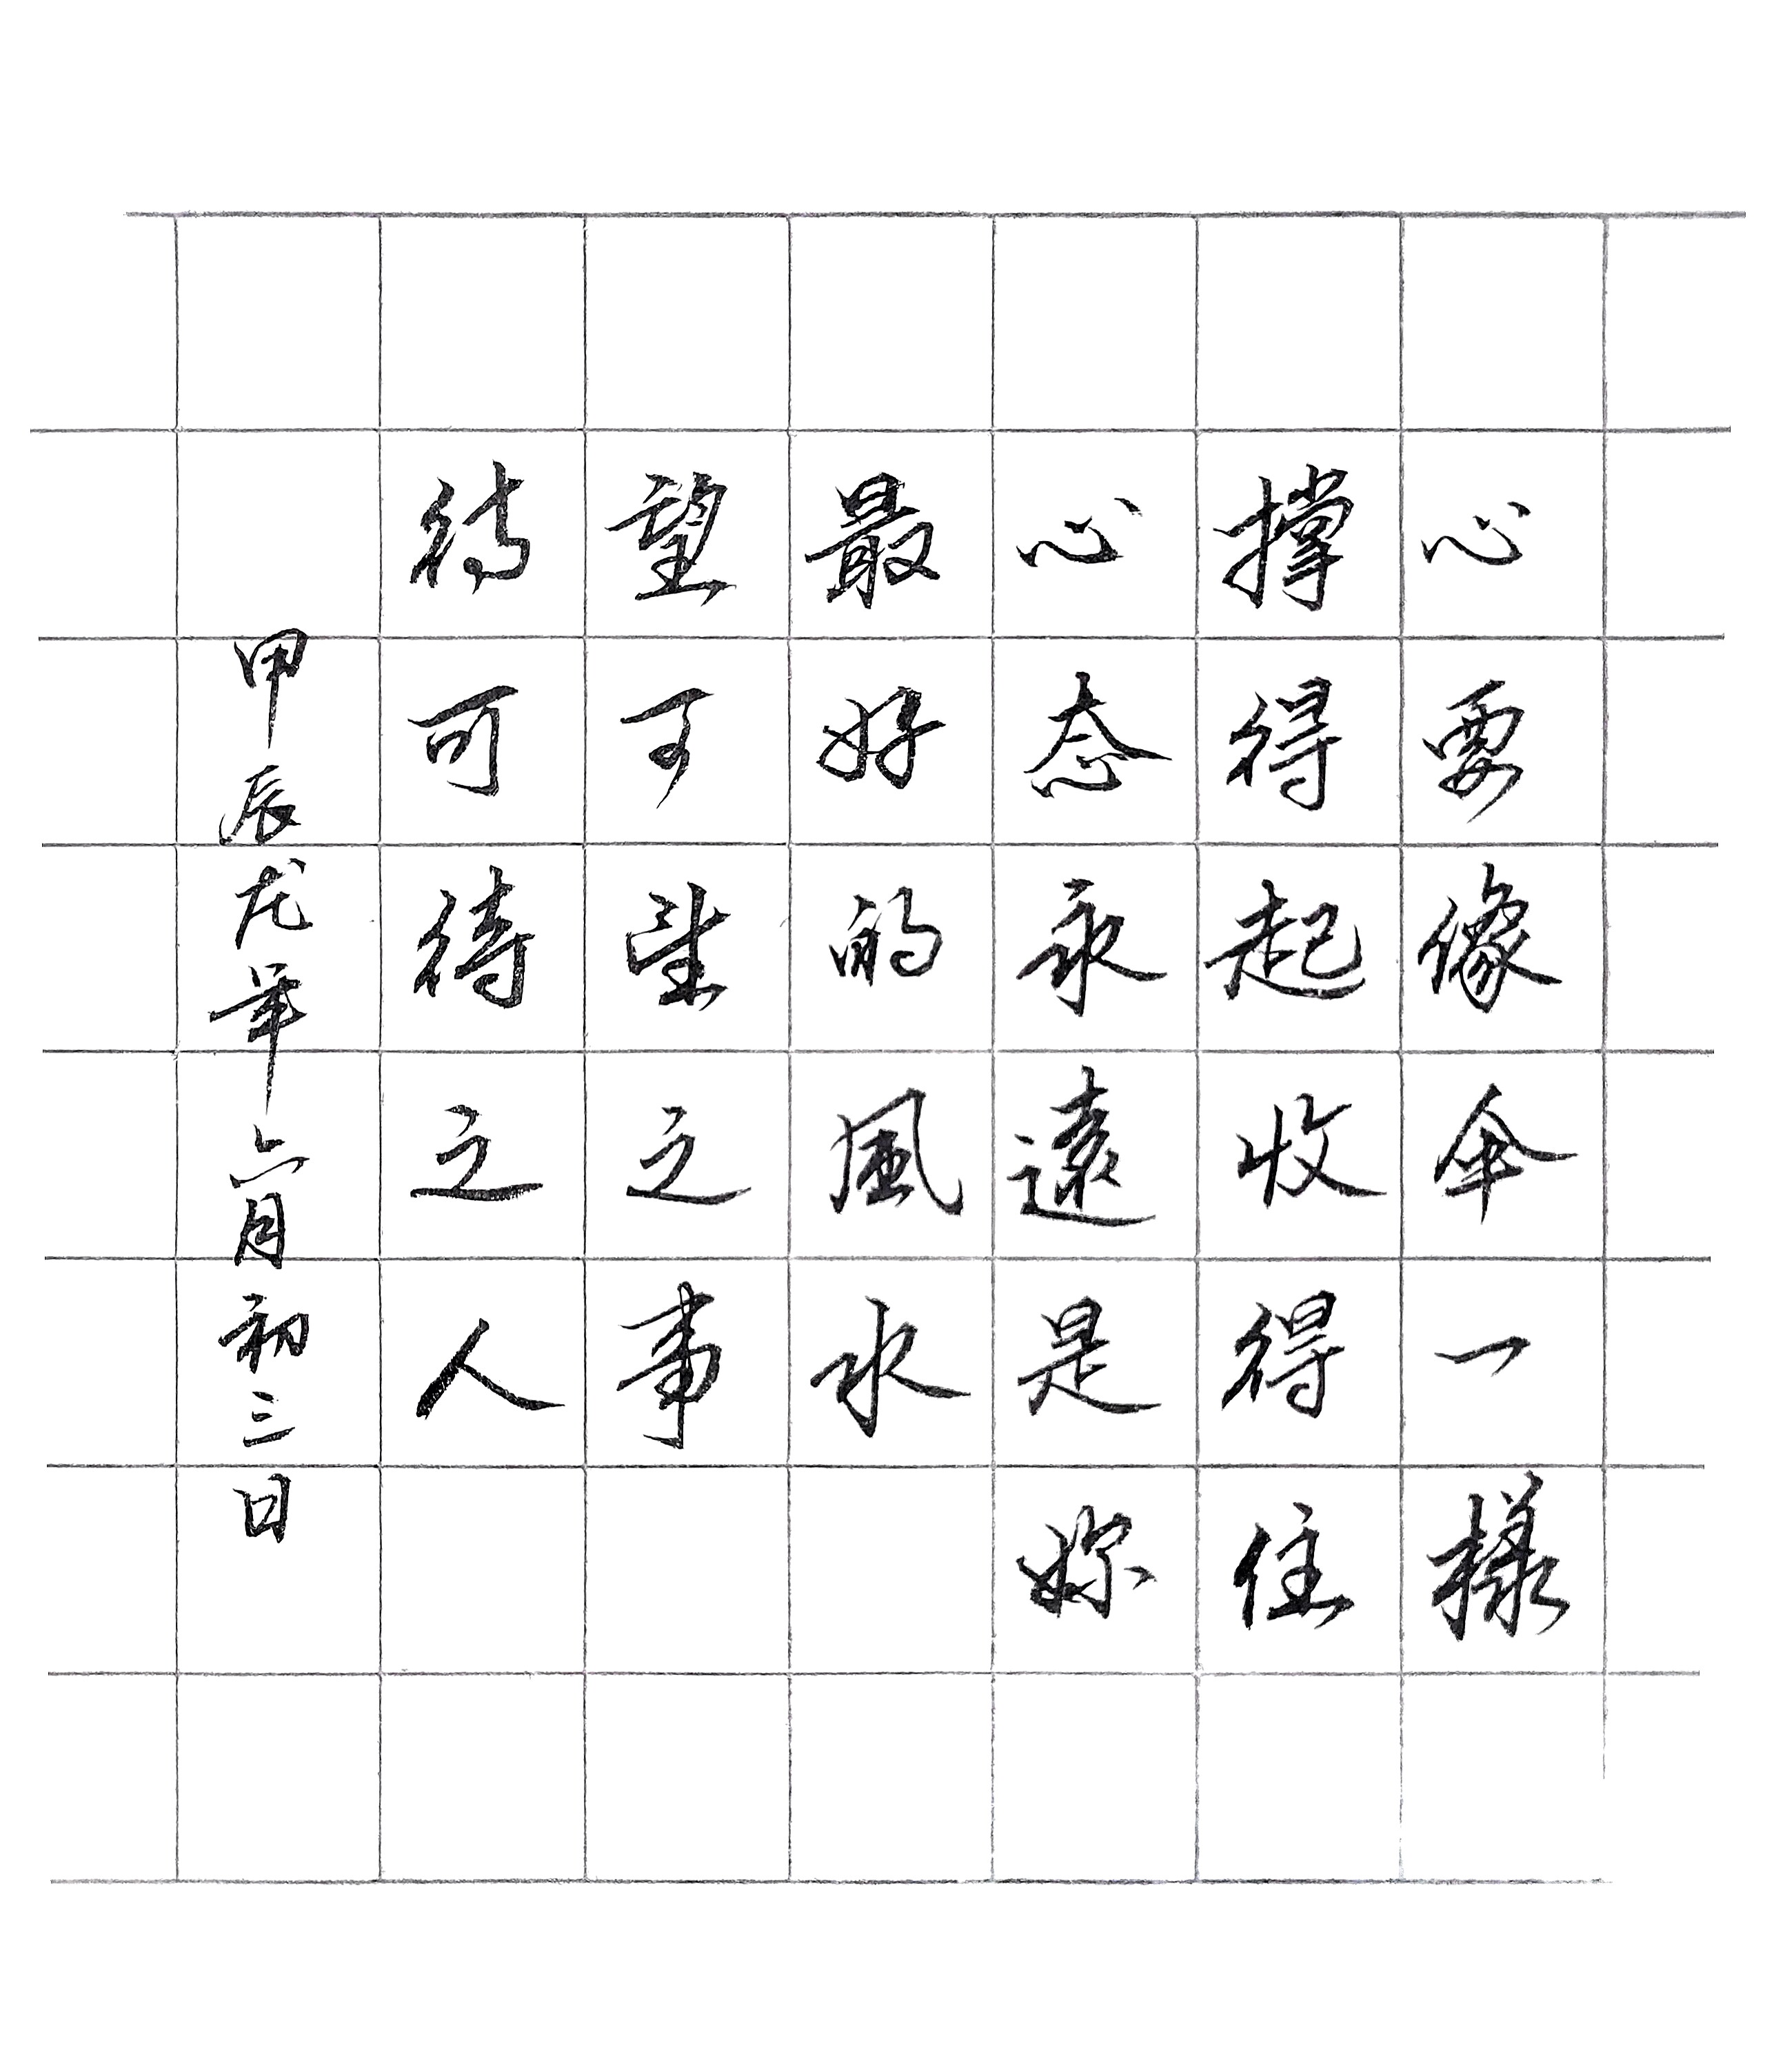 心要像伞一樣
撑得起收得住
心态永遠是妳
最好的風水
望可望之事
待可待之人
甲辰龙年六月初三日